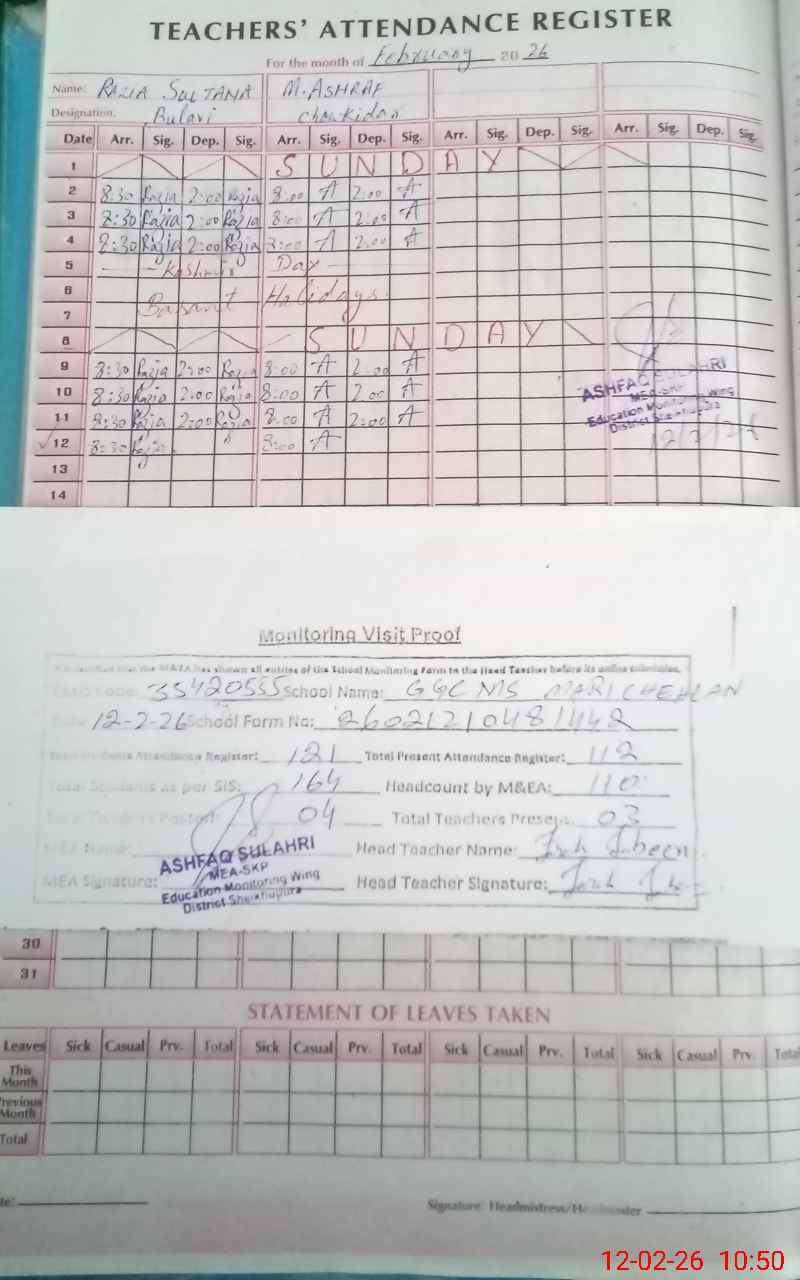 TEACHERS' ATTENDANCE REGISTER
For the month of February 2026
Name: RAZIA SULTANA M. ASHRAF
Designation. Bulavi Chowkidar
Date Arr. Sig. Dep. Sig. Arr. Sig. Dep. Sig. Arr. Sig. Dep. Sig. Arr. Sig. Dep. Sig.
1 SUNDAY
2 8:30 Razia 2:00 Razia 8:00 A 2:00 A
3 8:30 Razia 2:00 Razia 8:00 A 2:00 A
4 8:30 Razia 2:00 Razia 8:00 A 2:00 A
5 Kashmir Day
6 Basant Holidays
7
8 SUNDAY
9 8:30 Razia 2:00 Razia 8:00 A 2:00 A
10 8:30 Razia 2:00 Razia 8:00 A 2:00 A
11 8:30 Razia 2:00 Razia 8:00 A 2:00 A
12 8:30 Razia 8:00 A
13
14
ASHFAQ SULAHRI
MEA-SKP
Education Monitoring Wing
District Sheikhupura
12/2/26
Monitoring Visit Proof
that the M&EA has shown all entries of the School Monitoring Form to the Head Teacher before its online submission.
Code: 35420555 School Name: GGCMS MARI CHEHLAN
12-2-26 School Form No: 26021210481442
Attendance Register: 121 Total Present Attendance Register: 112
Total Students as per SIS: 164 Headcount by M&EA: 110
Total Teachers Posted: 04 Total Teachers Present: 03
MEA Name: Head Teacher Name:
MEA Signature: Head Teacher Signature:
ASHFAQ SULAHRI
MEA-SKP
Education Monitoring Wing
District Sheikhupura
30
31
STATEMENT OF LEAVES TAKEN
Leaves Sick Casual Prv. Total Sick Casual Prv. Total Sick Casual Prv. Total Sick Casual Prv. Total
This Month
Previous Month
Total
Signature: Headmistress/Headmaster
12-02-26 10:50